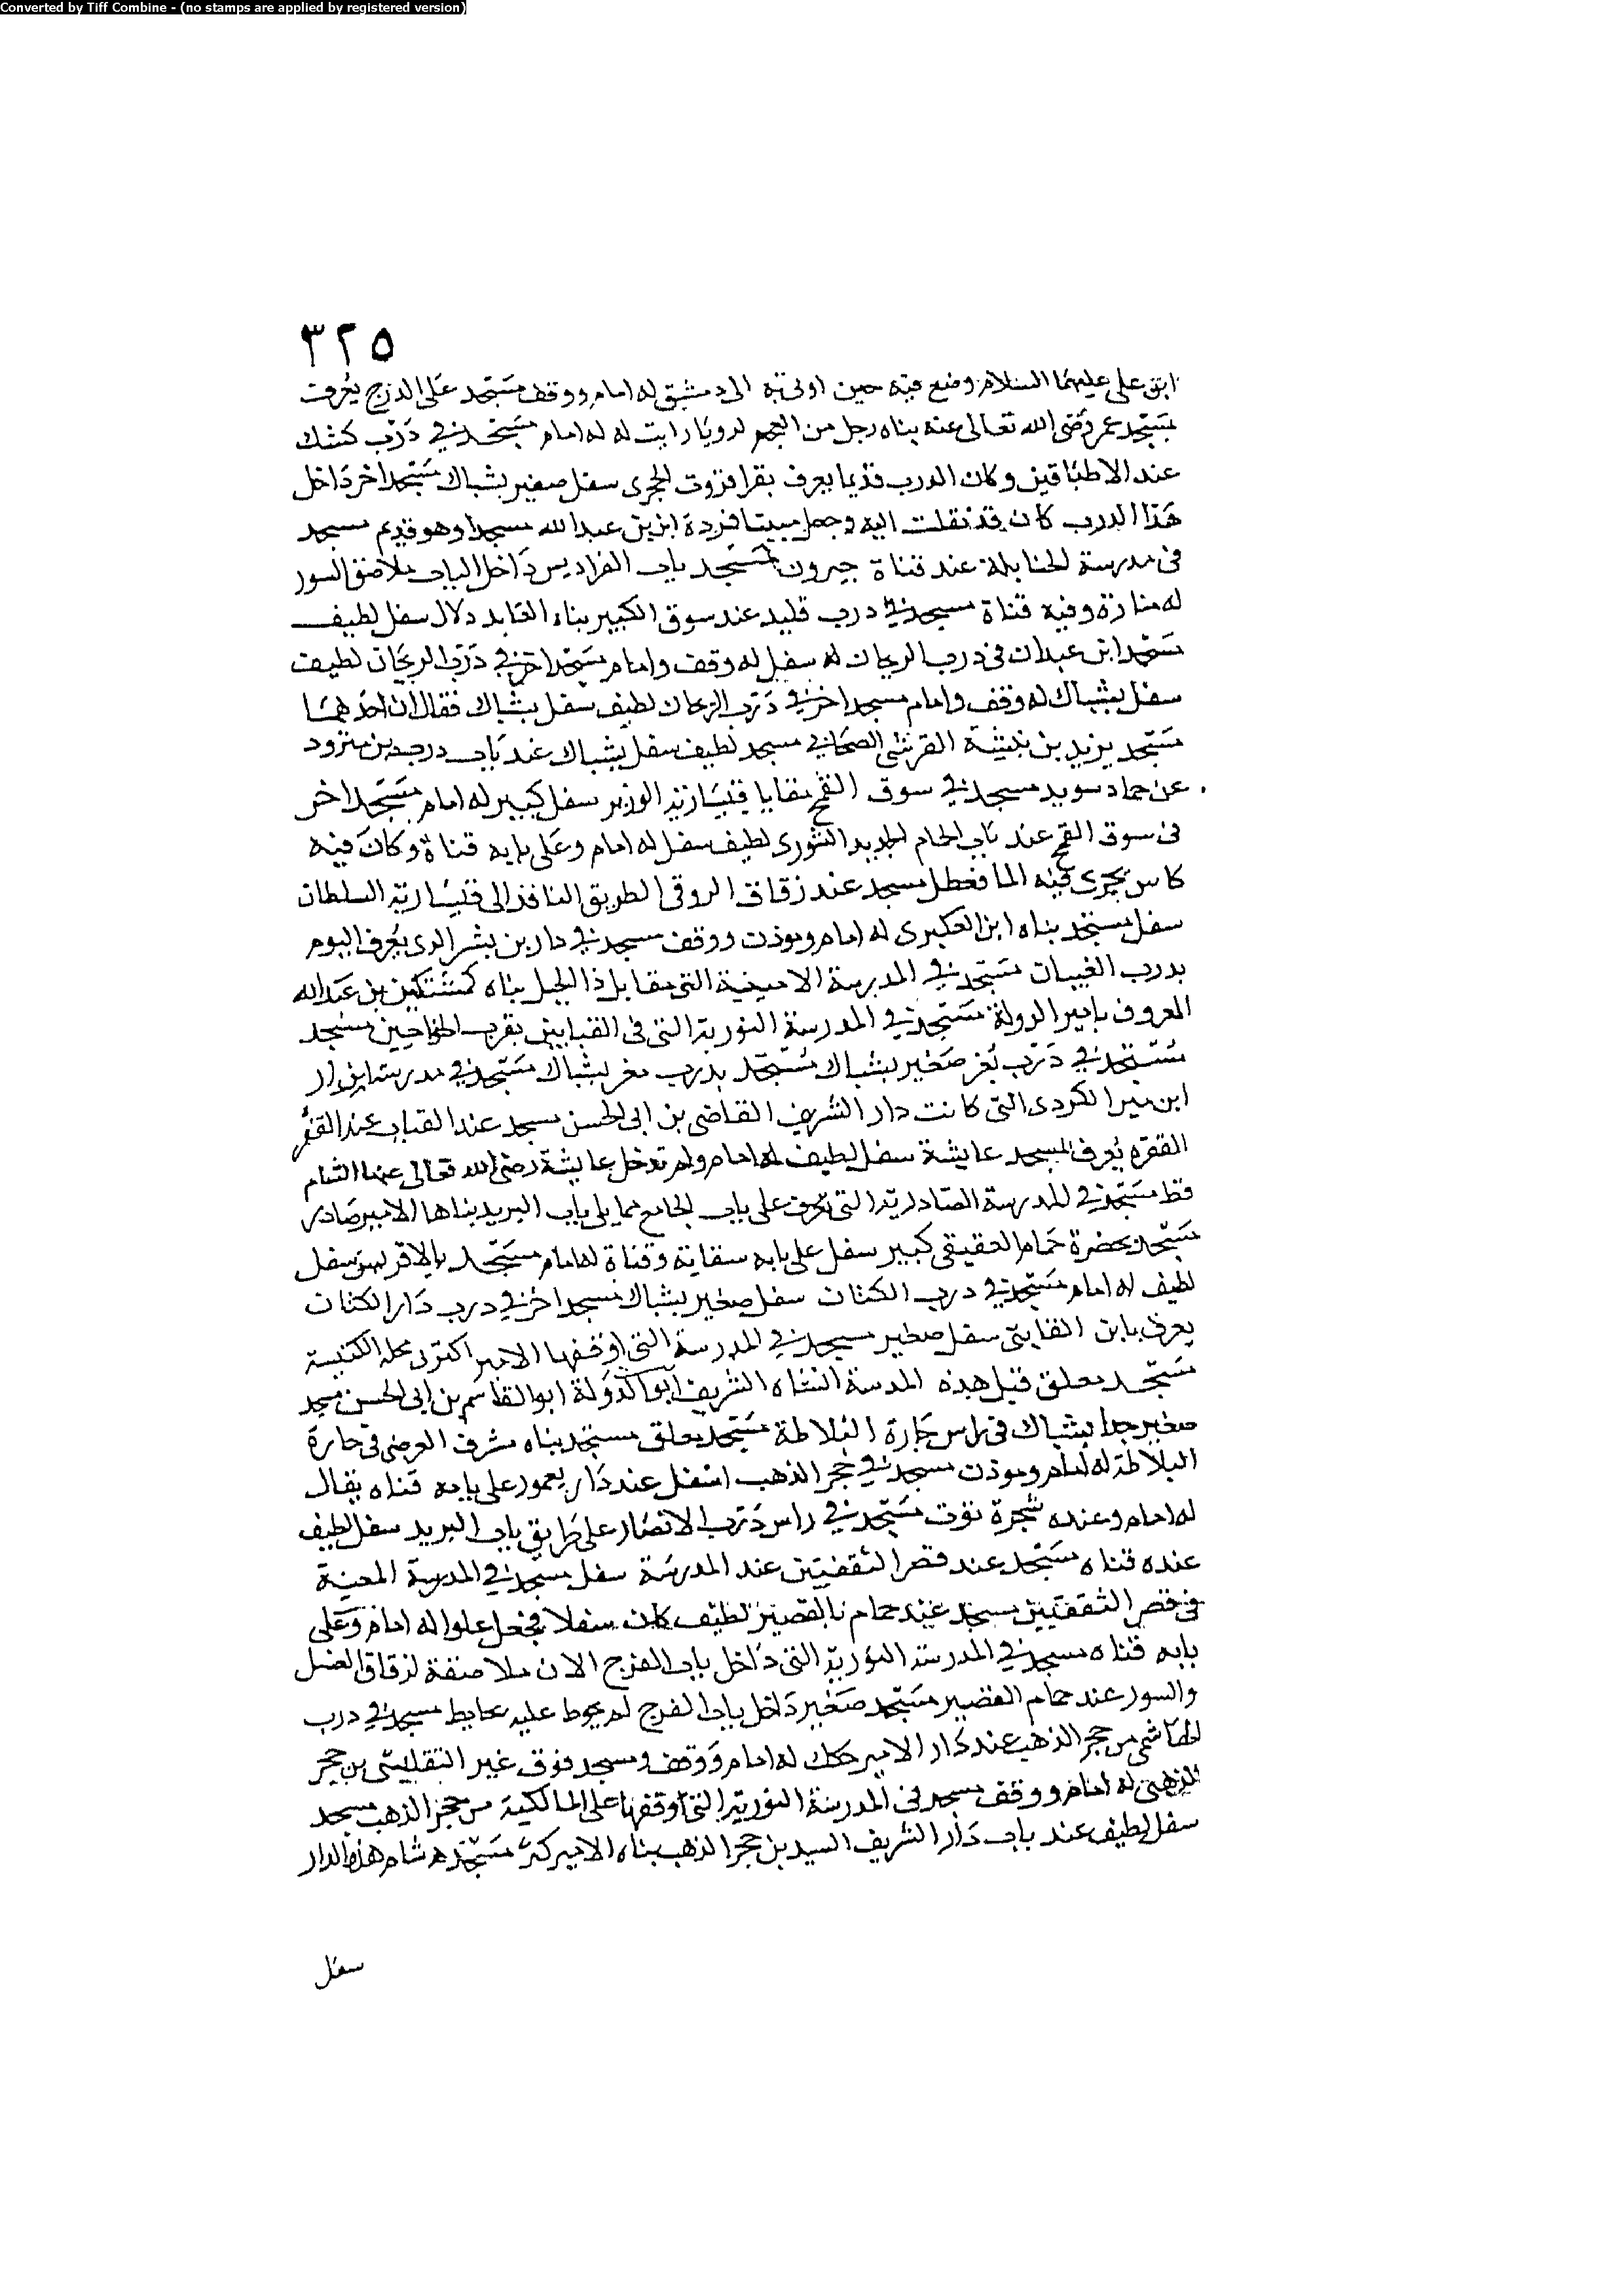 Converted by Tiff Combine - (no stamps are applied by registered version)
٣٢٥
ابن على عليهما السلام وضع فيه حين اوتى به الى دمشق له امام ووقف مسجد على الدرج يعرف
بمسجد عمر رضى الله تعالى عنه بناه رجل من العجم لرويا رايت له له امام مسجد في درب كشك
عند الاطباقين وكان الدرب قديما يعرف بقرا فزوت الحجرى سفل صغير بشباك مسجد اخر داخل
هذا الدرب كان قد نقلت اليه وجعل مبيتا فرده ابن بن عبد الله مسجدا وهو قديم مسجد
فى مدرسة الحنابلة عند قناة جيرون مسجد باب الفراديس داخل الباب ملاصق السور
له منارة وفيه قناة مسجد في درب قليد عند سوق الكبير بناه القايد دلال سفل لطيف
مسجد ابن عبدان فى درب الريحان له سفل له وقف وامام مسجد اخر في درب الريحان لطيف
سفل بشباك له وقف وامام مسجد اخر في درب الريحان لطيف سفل بشباك فقال ان احدهما
مسجد يزيد بن نبيشة القرشى الصحابي مسجد لطيف سفل بشباك عند باب درب بن مزود
عن حماد سويد مسجد في سوق القمح بقايا قيسارية الوزير سفل كبير له امام مسجد اخر
فى سوق القمح عند باب الحمام الجديد النورى لطيف سفل له امام وعلى بابه قناة وكان فيه
كاس يجرى فيه الما فعطل مسجد عند زقاق الروقى الطريق النافذ الى قيسارية السلطان
سفل مسجد بناه ابن العكبرى له امام وموذن ووقف مسجد في دار بن بشر الدى يعرف اليوم
بدرب الغيبان مسجد في المدرسة الامينية التى مقابل ذا الجبل بناه كمشتكين بن عبد الله
المعروف بامير الدولة مسجد في المدرسة النورية التى فى القبابين بقرب الخواجين مسجد
مسجد في درب بغر صغير بشباك مسجد بدرب معر بشباك مسجد في مدرسة ابن دار
ابن ميرا الكردى التى كانت دار الشريف القاضى بن ابى الحسن مسجد عند القباب عند القفر
الققره يعرف المسجد عايشة سفل لطيف له امام ولم تدخل عايشة رضى الله تعالى عنها الشام
قط مسجد في المدرسة الصادرية التى تعرف على باب الجامع مما يلى باب البريد بناها الامير صادر
مسجد بحضرة حمام العقيقى كبير سفل على بابه سقاية وقناة له امام مسجد بالاقريس سفل
لطيف له امام مسجد في درب الكتان سفل صغير بشباك مسجد اخر في درب دار الكتان
يعرف بابن القابتى سفل صغير مسجد في المدرسة التى اوقفها الامير اكتز لى محله الكنيسة
مسجد معلق قبل هذه المدسة انشاه الشريف ابو الدولة ابو القاسم بن ابى الحسن مسجد
صغير جدا بشباك فى راس حارة البلاطة مسجد معلق مسجد بناه مشرف العرضى فى حارة
البلاطة له امام وموذن مسجد في حجر الذهب اسفل عند دار يعمور على بابه قناه يقال
له امام وعنده شجرة توت مسجد في راس درب الانصار على طريق باب البريد سفل لطيف
عنده قناه مسجد عند قصر الثقفيين عند المدرسة سفل مسجد في المدرسة المعينة
فى قصر الثقفيين مسجد عند حمام بالقصير لطيف كان سفلا فجعل علوا له امام وعلى
بابه قناه مسجد في المدرسة النورية التى داخل باب الفرج الان ملاصقة لزقاق العسل
والسور عند حمام القصير مسجد صغير داخل باب الفرج لم يحوط عليه بحايط مسجد في درب
الهاشمى من حجر الذهب عند دار الامير حكك له امام ووقف ومسجد فوق غير التقليتى بن حجر
الذهبى له امام ووقف مسجد فى المدرسة النورية التى اوقفها على المالكية من حجر الذهب مسجد
سفل لطيف عند باب دار الشريف السيد بن حجر الذهب بناه الامير كز مسجد هشام هذا الدار
سفل